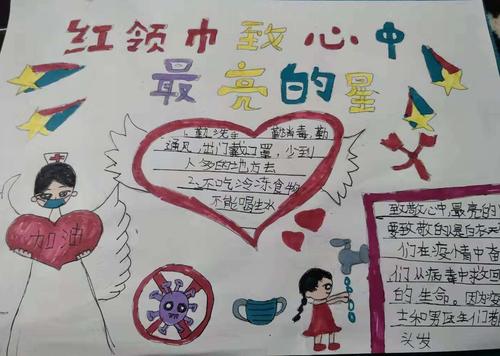 红领巾致心中
最亮的星
1、勤洗手 勤消毒,勤
通风,出门戴口罩,少到
人多的地方去
2、不吃冷冻食物
不能喝生水
加油
致敬心中,最亮的
要致敬的是白衣
们在疫情中奋
们从病毒中救
的生命。因为
士和男医生们
头发